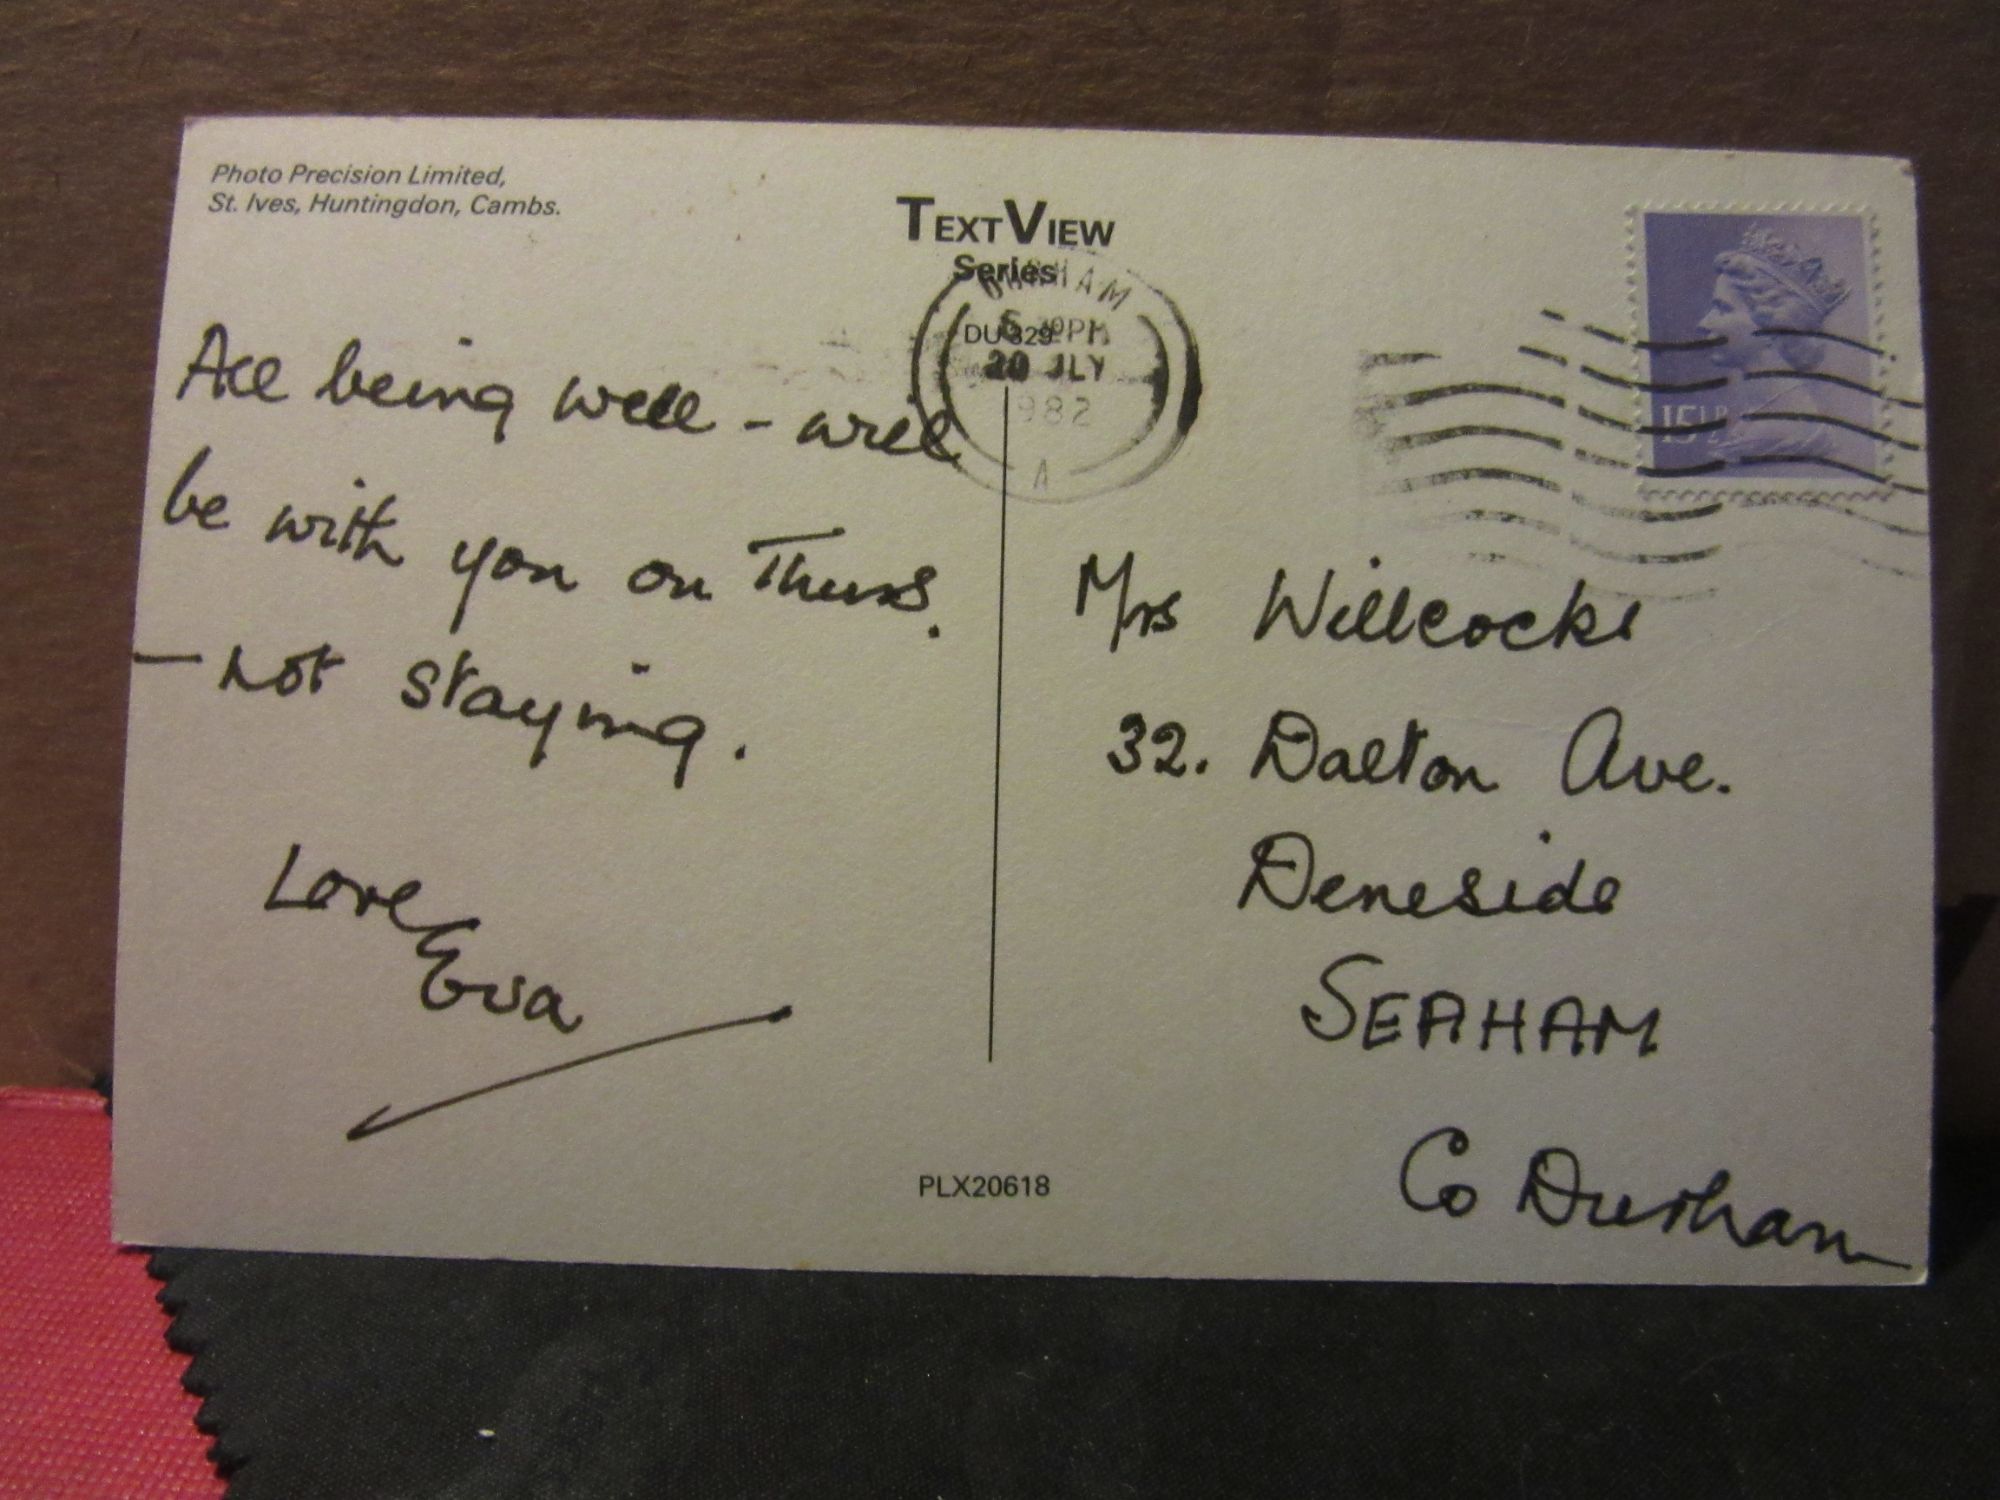 Photo Precision Limited,
St. Ives, Huntingdon, Cambs.
TEXT VIEW
Series
DU 329
DURHAM
PM
20 JLY
1982
A
15½P
All being well - will
be with you on Thurs.
- not staying.
Love
Eva
Mrs Willcocks
32. Dalton Ave.
Deneside
SEAHAM
Co Durham
PLX20618